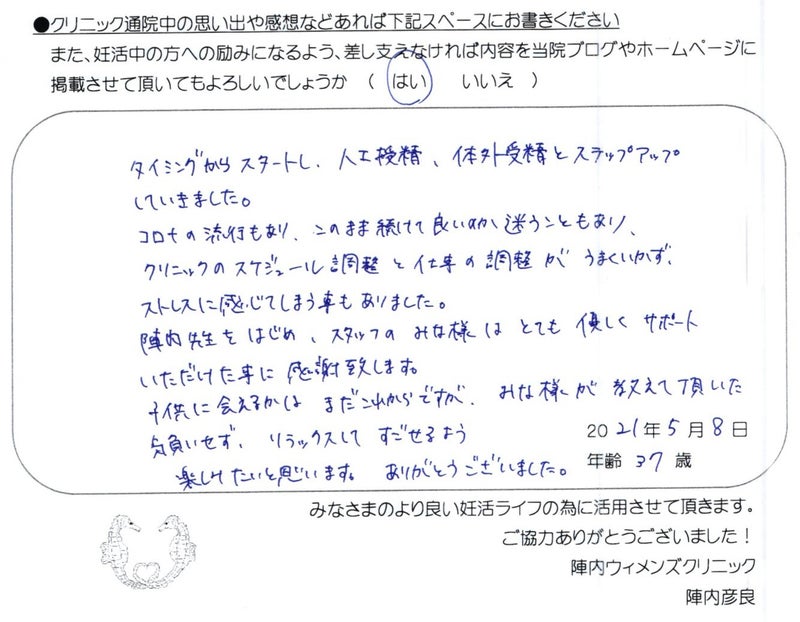 ●クリニック通院中の思い出や感想などあれば下記スペースにお書きください
また、妊活中の方への励みになるよう、差し支えなければ内容を当院ブログやホームページに
掲載させて頂いてもよろしいでしょうか （ はい　いいえ ）
タイミングからスタートし、人工授精、体外受精とステップアップ
していきました。
コロナの流行もあり、このまま続けて良いのか迷うこともあり、
クリニックのスケジュール調整と仕事の調整がうまくいかず、
ストレスに感じてしまう事もありました。
陣内先生をはじめ、スタッフのみな様はとても優しくサポート
いただけた事に感謝致します。
子供に会えるかはまだこれからですが、みな様が教えて頂いた
気負いせず、リラックスしてすごせるよう
楽しみたいと思います。ありがとうございました。
2021年5月8日
年齢 37 歳
みなさまのより良い妊活ライフの為に活用させて頂きます。
ご協力ありがとうございました！
陣内ウィメンズクリニック
陣内彦良